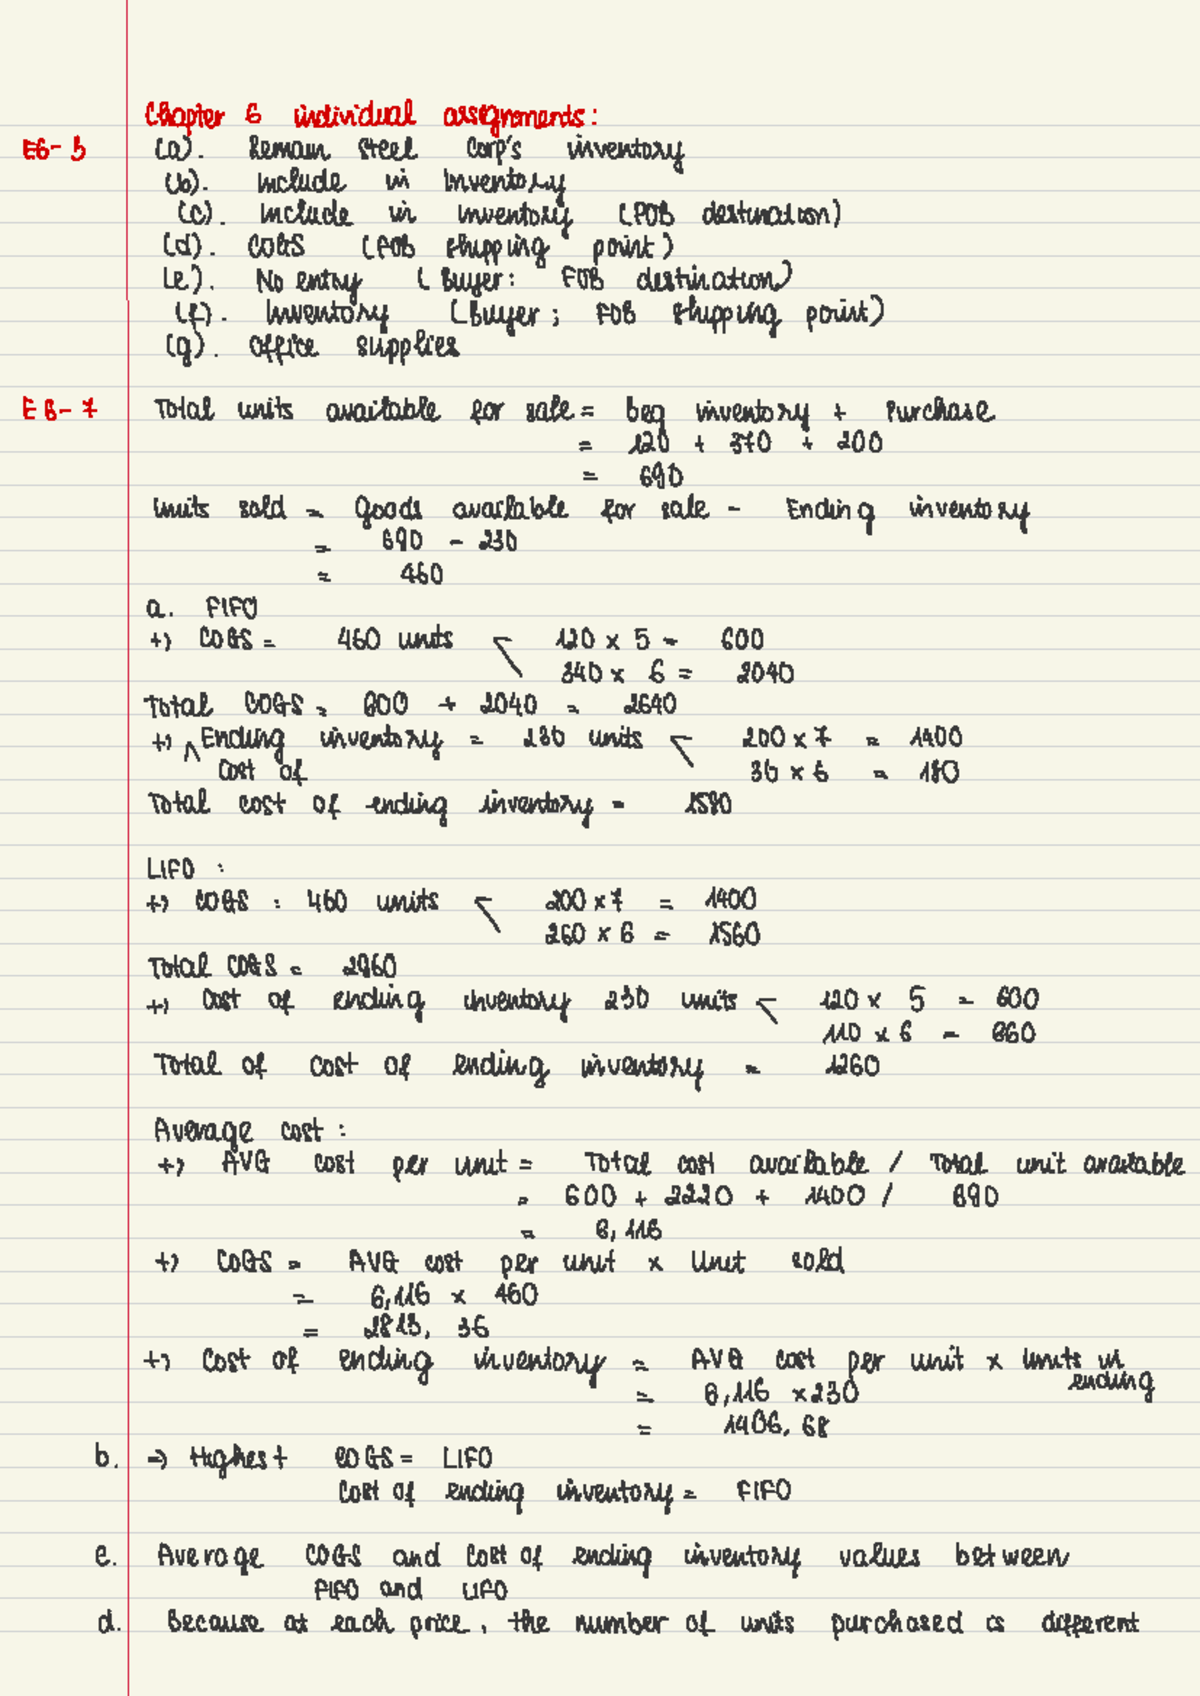 Chapter 6 individual assignments:
E6-3 (a). Remain Steel Corp's inventory
(b). Include in Inventory
(c). Include in inventory (FOB destination)
(d). COGS (FOB shipping point)
(e). No entry (Buyer: FOB destination)
(f). Inventory (Buyer; FOB shipping point)
(g). Office supplies
E6-7 Total units available for sale = beg inventory + Purchase
= 120 + 370 + 200
= 690
Units sold = Goods available for sale - Ending inventory
= 690 - 230
= 460
a. FIFO
+) COGS = 460 units 120 x 5 = 600
340 x 6 = 2040
Total COGS = 600 + 2040 = 2640
+) ^ Ending inventory = 230 units 200 x 7 = 1400
Cost of 30 x 6 = 180
Total cost of ending inventory = 1580
LIFO :
+) COGS : 460 units 200 x 7 = 1400
260 x 6 = 1560
Total COGS = 2960
+) Cost of ending inventory 230 units 120 x 5 = 600
110 x 6 = 660
Total of cost of ending inventory = 1260
Average cost :
+) AVG cost per unit = Total cost available / Total unit available
= 600 + 2220 + 1400 / 690
= 6,116
+) COGS = AVG cost per unit x Unit sold
= 6,116 x 460
= 2813, 36
+) Cost of ending inventory = AVG cost per unit x Units in
ending
= 6,116 x 230
= 1406. 68
b. => Highest COGS = LIFO
Cost of ending inventory = FIFO
c. Average COGS and Cost of ending inventory values between
FIFO and LIFO
d. Because at each price, the number of units purchased is different